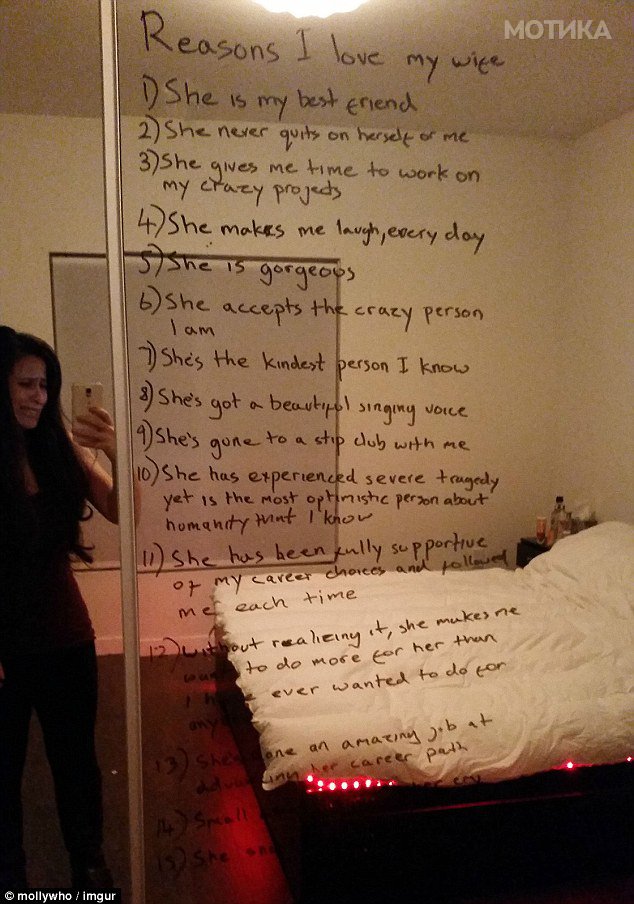 МОТИКА
Reasons I love my wife
1) She is my best friend
2) She never quits on herself or me
3) She gives me time to work on
my crazy projects
4) She makes me laugh, every day
5) She is gorgeous
6) She accepts the crazy person
I am
7) She's the kindest person I know
8) She's got a beautiful singing voice
9) She's gone to a stip club with me
10) She has experienced severe tragedy
yet is the most optimistic person about
humanity that I know
11) She has been fully supportive
of my career choices and followed
me each time
12) Without realizing it, she makes me
to do more for her than
I ever wanted to do for
13) She's one an amazing job at
her career path
14) Small her cry
15) She
© mollywho / imgur